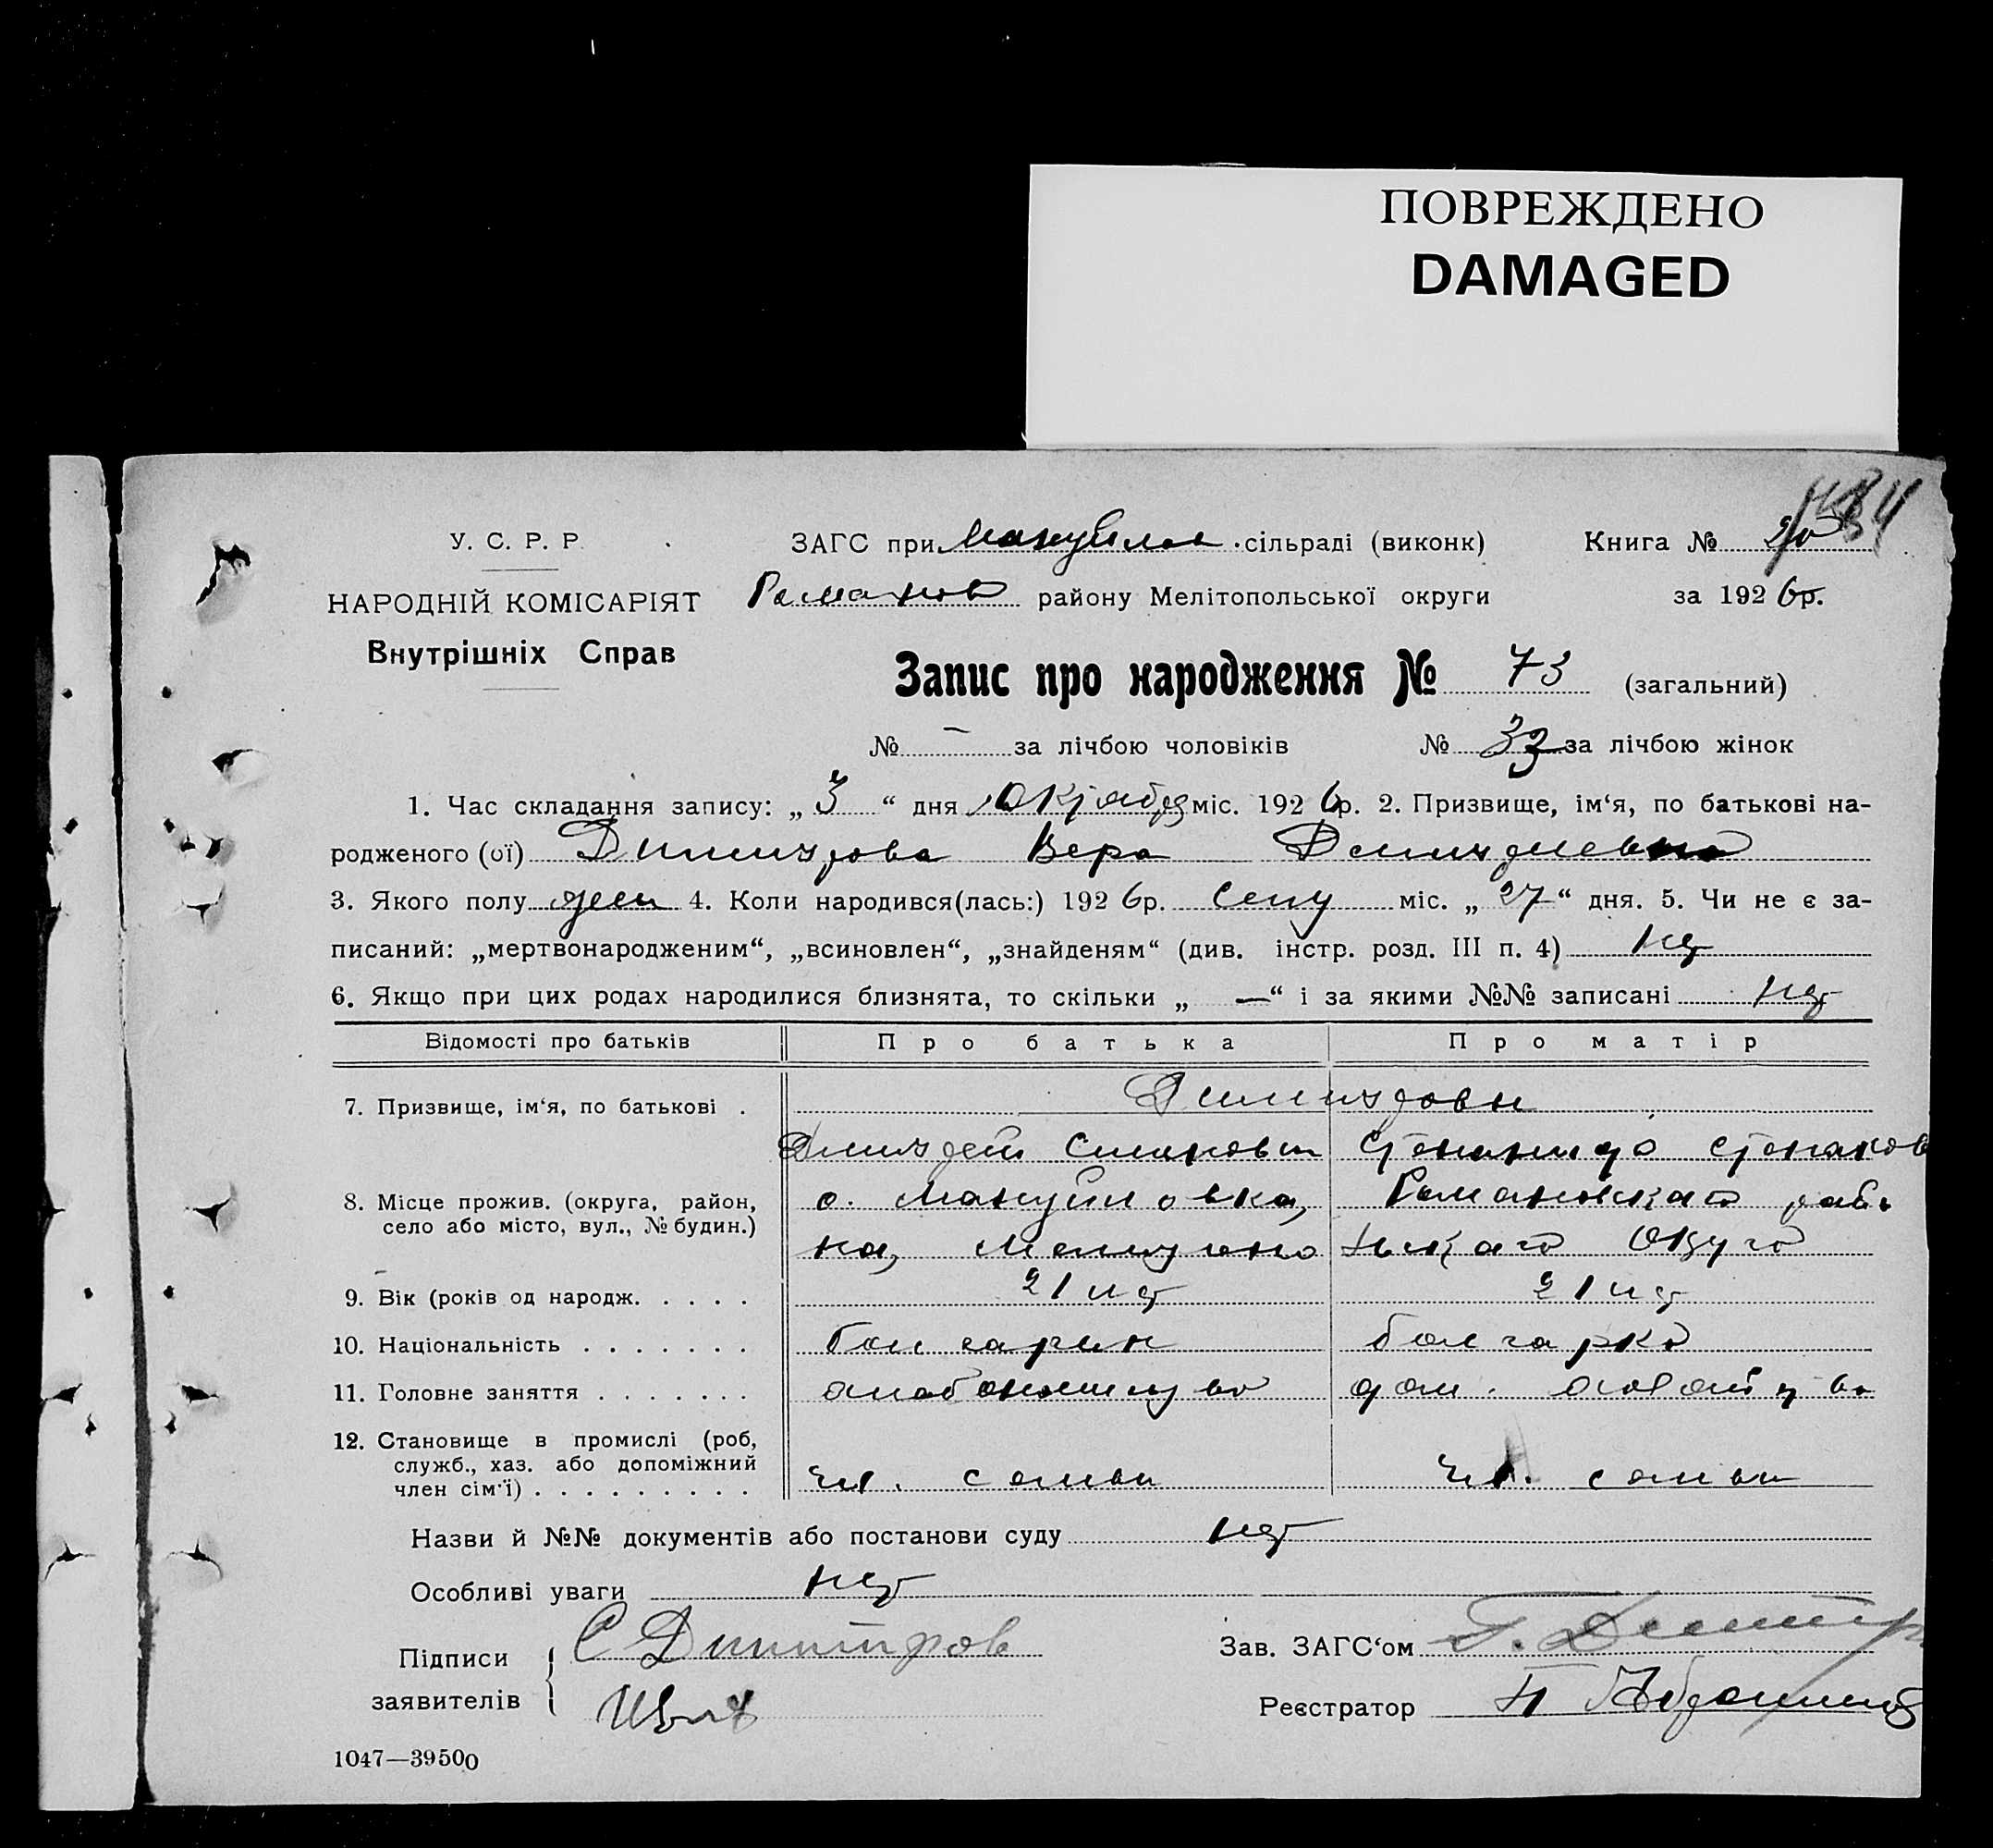 ПОВРЕЖДЕНО
DAMAGED
У. С. Р. Р. ЗАГС при Мануйлов. сільраді (виконк) Книга №
НАРОДНІЙ КОМІСАРІЯТ Романов района Мелітопольської округи за 1926р.
Внутрішніх Справ
Запис про народження № 73 (загальний)
№ — за лічбою чоловіків № 33 за лічбою жінок
1. Час складання запису: „ 3 “ дня Октября міс. 1926р. 2. Призвище, ім‘я, по батькові на-
родженого (ої) Димитрова Вера Дмитриевна
3. Якого полу жен 4. Коли народився(лась:) 1926р. Сент міс. „ 27 “ дня. 5. Чи не є за-
писаний: „мертвонародженим“, „всиновлен“, „знайденям“ (див. інстр. розд. III п. 4) нет
6. Якщо при цих родах народилися близнята, то скільки „ — “ і за якими №№ записані нет
Відомості про батьків Про батька Про матір
7. Призвище, ім‘я, по батькові . Димитровы
Дмитрий Степанида
8. Місце прожив. (округа, район, с. Мануйловка, Романовского райо
село або місто, вул., № будин.)
на, Мелитопо льского Округа
9. Вік (років од народж. . . . . 21 лет 21 лет
10. Національність . . . . . . . болгарин болгарка
11. Головне заняття . . . . . . . хлебопашество дом. хозяйство
12. Становище в промислі (роб,
служб., хаз. або допоміжний
член сім‘ї) . . . . . . . . . чл. семьи чл. семьи
Назви й №№ документів або постанови суду нет
Особливі уваги нет
Підписи С Димитров Зав. ЗАГС‘ом
заявителів Реєстратор
1047—39500